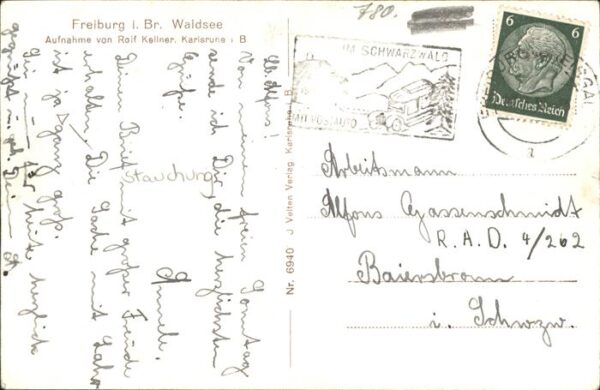 Freiburg i. Br. Waldsee
Aufnahme von Rolf Kellner, Karlsruhe i B
780.
IM SCHWARZWALD
MIT POSTAUTO
6 6
Deutsches Reich
Nr. 6940 J Velten Verlag Karlsruhe i. B
Lb. Alfons!
Von meinem freien Sonntag
sende ich Dir die herzlichsten
Grüße.
Annele.
Deinen Brief mit großer Freude
erhalten. Die Sache mit
ist ja ganz groß.
herzlich
gegrüßt
Stauchung
Arbeitsmann
Alfons Gassenschmidt
R.A.D. 4/262
Baiersbronn
i. Schwzw.